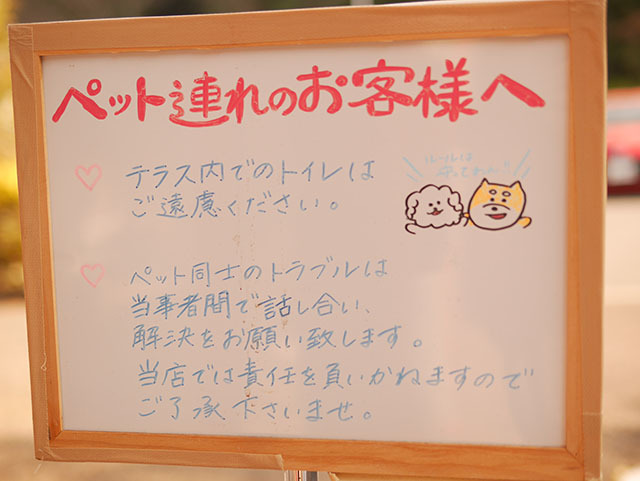 ペット連れのお客様へ
テラス内でのトイレは
ご遠慮ください。
ルールは
守ってわん!!
ペット同士のトラブルは
当事者間で話し合い、
解決をお願い致します。
当店では責任を負いかねますので
ご了承下さいませ。